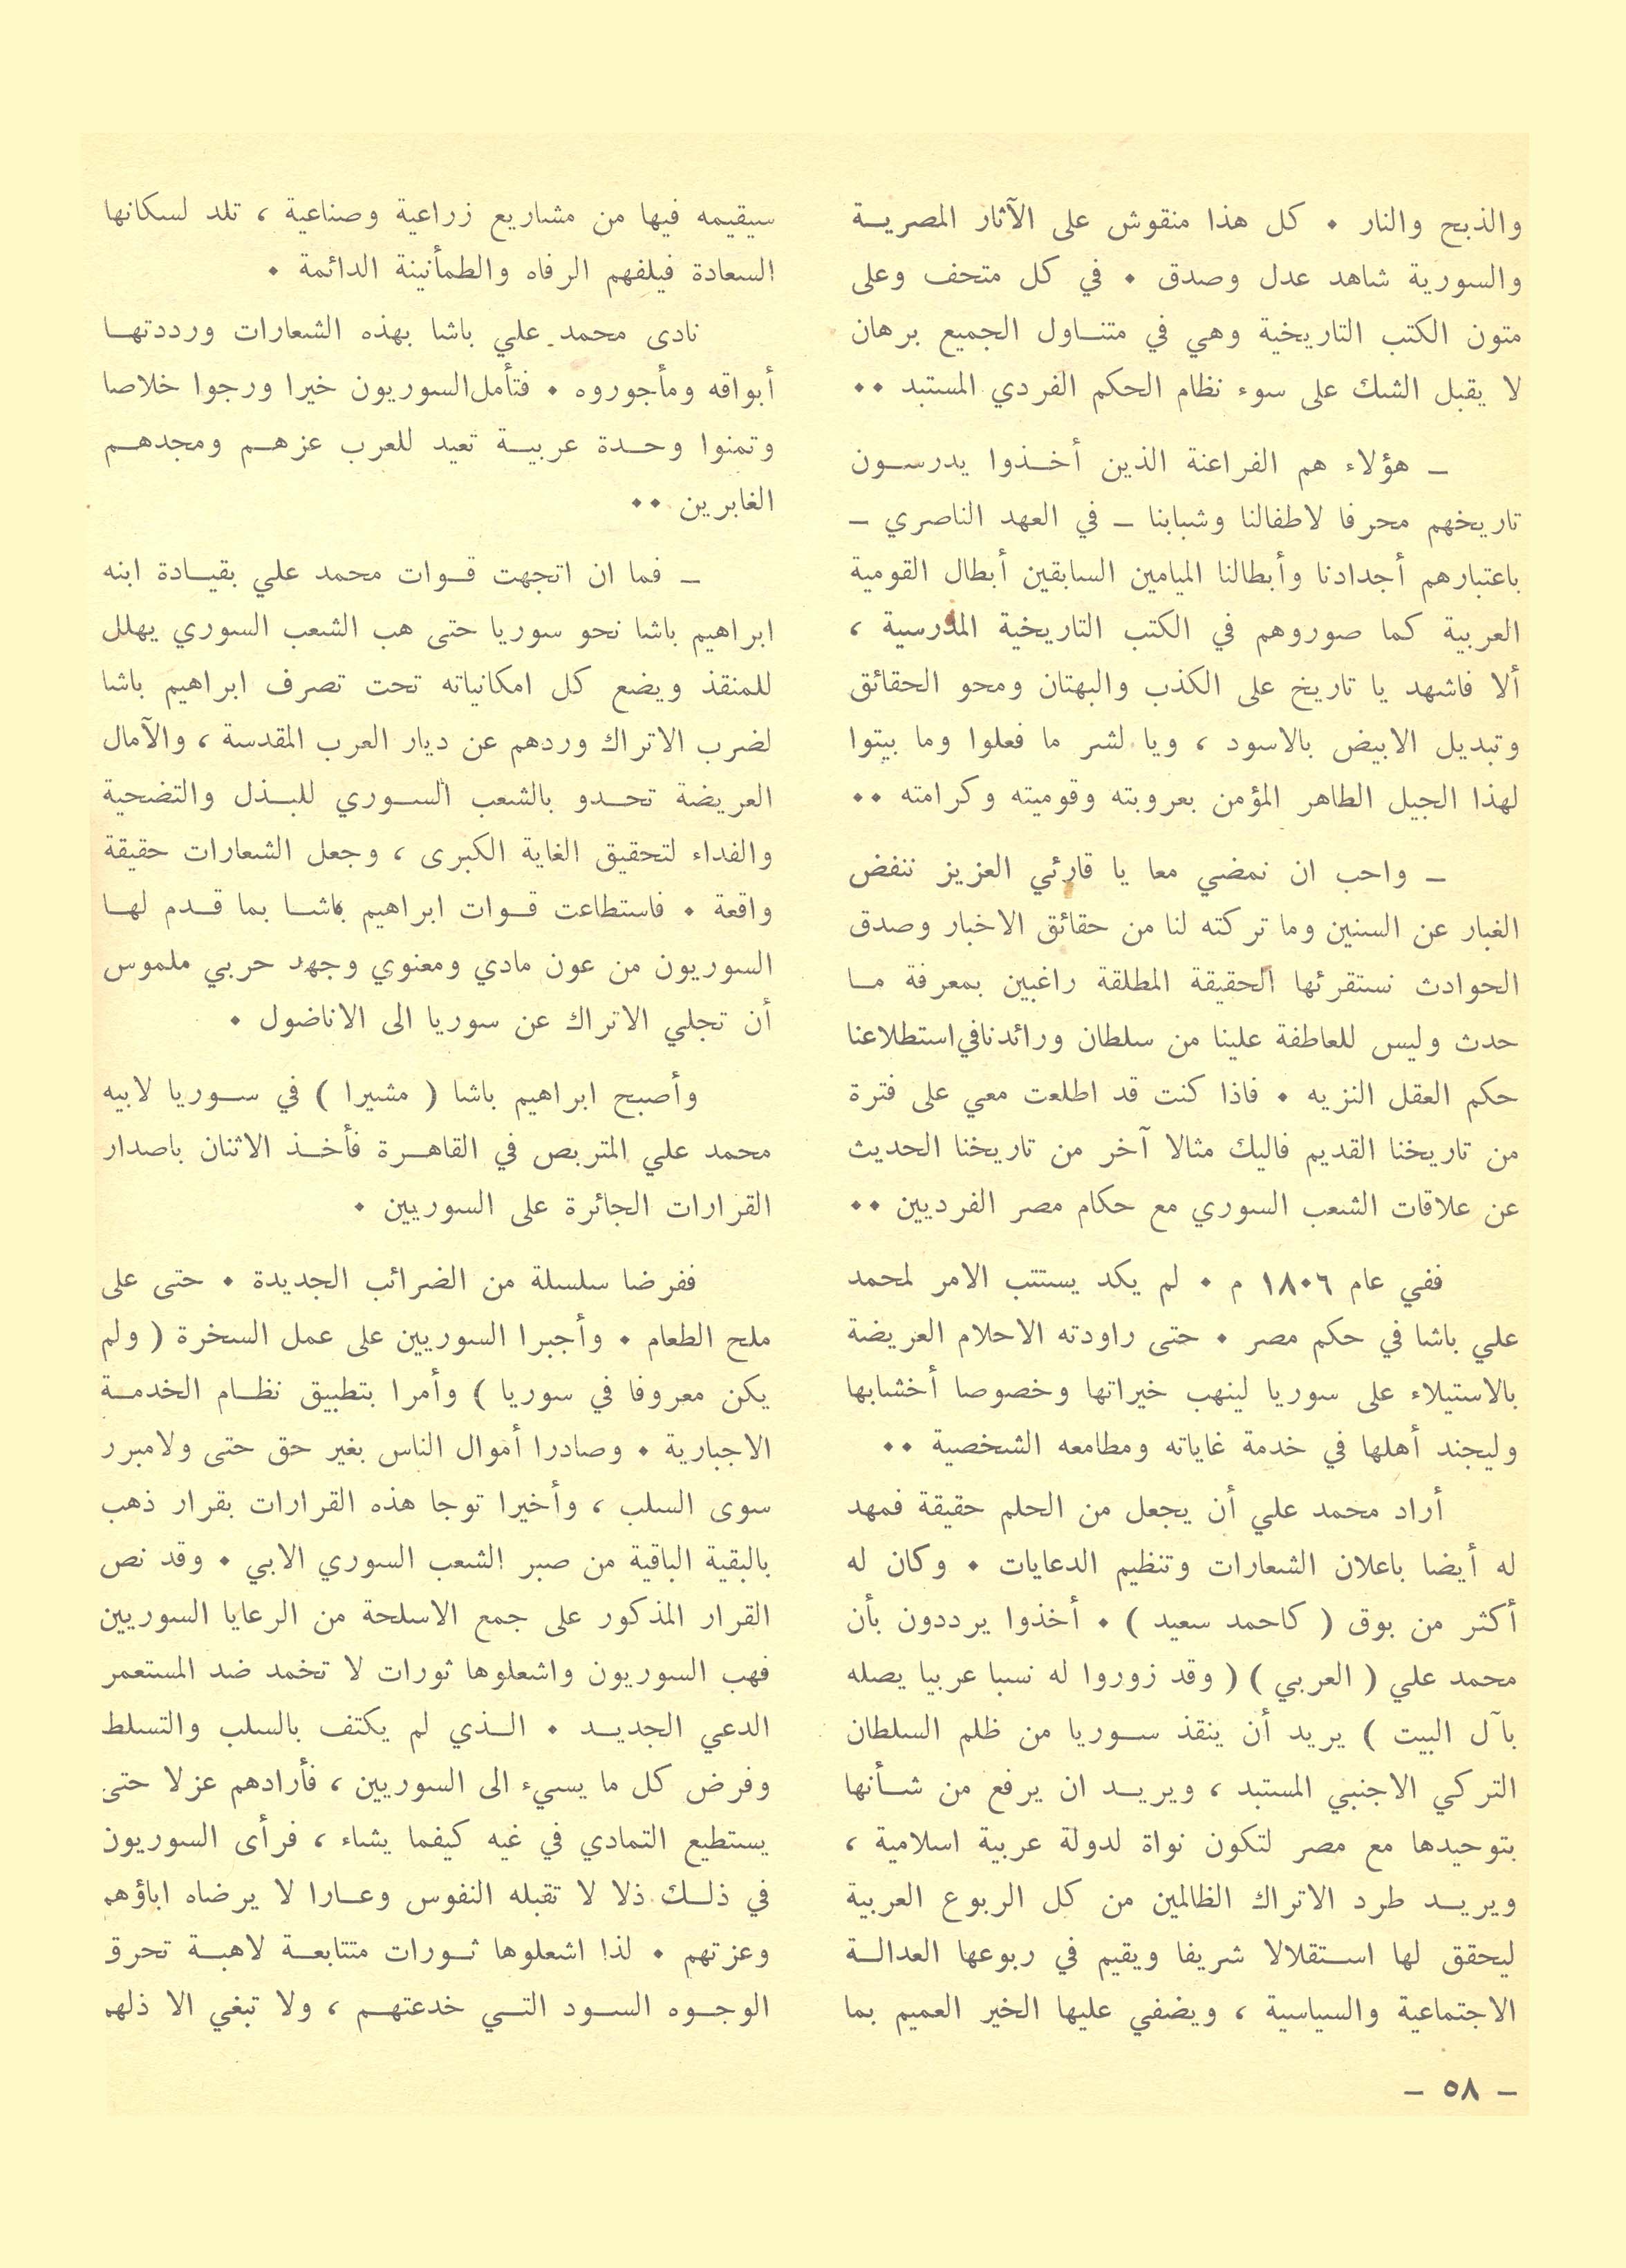 والذبح والنار ٠ كل هذا منقوش على الآثار المصرية
والسورية شاهد عدل وصدق ٠ في كل متحف وعلى
متون الكتب التاريخية وهي في متناول الجميع برهان
لا يقبل الشك على سوء نظام الحكم الفردي المستبد ٠٠
ــ هؤلاء هم الفراعنة الذين أخذوا يدرسون
تاريخهم محرفا لاطفالنا وشبابنا ــ في العهد الناصري ــ
باعتبارهم أجدادنا وأبطالنا الميامين السابقين أبطال القومية
العربية كما صوروهم في الكتب التاريخية المدرسية ،
ألا فاشهد يا تاريخ على الكذب والبهتان ومحو الحقائق
وتبديل الابيض بالاسود ، ويا لشر ما فعلوا وما بيتوا
لهذا الجيل الطاهر المؤمن بعروبته وقوميته وكرامته ٠٠
ــ واحب ان نمضي معا يا قارئي العزيز ننفض
الغبار عن السنين وما تركته لنا من حقائق الاخبار وصدق
الحوادث نستقرئها الحقيقة المطلقة راغبين بمعرفة ما
حدث وليس للعاطفة علينا من سلطان ورائدنا في استطلاعنا
حكم العقل النزيه ٠ فاذا كنت قد اطلعت معي على فترة
من تاريخنا القديم فاليك مثالا آخر من تاريخنا الحديث
عن علاقات الشعب السوري مع حكام مصر الفرديين ٠٠
ففي عام ١٨٠٦ م ٠ لم يكد يستتب الامر لمحمد
علي باشا في حكم مصر ٠ حتى راودته الاحلام العريضة
بالاستيلاء على سوريا لينهب خيراتها وخصوصا أخشابها
وليجند أهلها في خدمة غاياته ومطامعه الشخصية ٠٠
أراد محمد علي أن يجعل من الحلم حقيقة فمهد
له أيضا باعلان الشعارات وتنظيم الدعايات ٠ وكان له
أكثر من بوق ( كاحمد سعيد ) ٠ أخذوا يرددون بأن
محمد علي ( العربي ) ( وقد زوروا له نسبا عربيا يصله
بآل البيت ) يريد أن ينقذ سوريا من ظلم السلطان
التركي الاجنبي المستبد ، ويريد ان يرفع من شأنها
بتوحيدها مع مصر لتكون نواة لدولة عربية اسلامية ،
ويريد طرد الاتراك الظالمين من كل الربوع العربية
ليحقق لها استقلالا شريفا ويقيم في ربوعها العدالة
الاجتماعية والسياسية ، ويضفي عليها الخير العميم بما
سيقيمه فيها من مشاريع زراعية وصناعية ، تلد لسكانها
السعادة فيلفهم الرفاه والطمأنينة الدائمة ٠
نادى محمد علي باشا بهذه الشعارات ورددتها
أبواقه ومأجوروه ٠ فتأمل السوريون خيرا ورجوا خلاصا
وتمنوا وحدة عربية تعيد للعرب عزهم ومجدهم
الغابرين ٠٠
ــ فما ان اتجهت قوات محمد علي بقيادة ابنه
ابراهيم باشا نحو سوريا حتى هب الشعب السوري يهلل
للمنقذ ويضع كل امكانياته تحت تصرف ابراهيم باشا
لضرب الاتراك وردهم عن ديار العرب المقدسة ، والآمال
العريضة تحدو بالشعب السوري للبذل والتضحية
والفداء لتحقيق الغاية الكبرى ، وجعل الشعارات حقيقة
واقعة ٠ فاستطاعت قوات ابراهيم باشا بما قدم لها
السوريون من عون مادي ومعنوي وجهد حربي ملموس
أن تجلي الاتراك عن سوريا الى الاناضول ٠
وأصبح ابراهيم باشا ( مشيرا ) في سوريا لابيه
محمد علي المتربص في القاهرة فأخذ الاثنان باصدار
القرارات الجائرة على السوريين ٠
ففرضا سلسلة من الضرائب الجديدة ٠ حتى على
ملح الطعام ٠ وأجبرا السوريين على عمل السخرة ( ولم
يكن معروفا في سوريا ) وأمرا بتطبيق نظام الخدمة
الاجبارية ٠ وصادرا أموال الناس بغير حق حتى ولامبرر
سوى السلب ، وأخيرا توجا هذه القرارات بقرار ذهب
بالبقية الباقية من صبر الشعب السوري الابي ٠ وقد نص
القرار المذكور على جمع الاسلحة من الرعايا السوريين
فهب السوريون واشعلوها ثورات لا تخمد ضد المستعمر
الدعي الجديد ٠ الذي لم يكتف بالسلب والتسلط
وفرض كل ما يسيء الى السوريين ، فأرادهم عزلا حتى
يستطيع التمادي في غيه كيفما يشاء ، فرأى السوريون
في ذلك ذلا لا تقبله النفوس وعارا لا يرضاه اباؤهم
وعزتهم ٠ لذا اشعلوها ثورات متتابعة لاهبة تحرق
الوجوه السود التي خدعتهم ، ولا تبغي الا ذلهم
ــ ٥٨ ــ